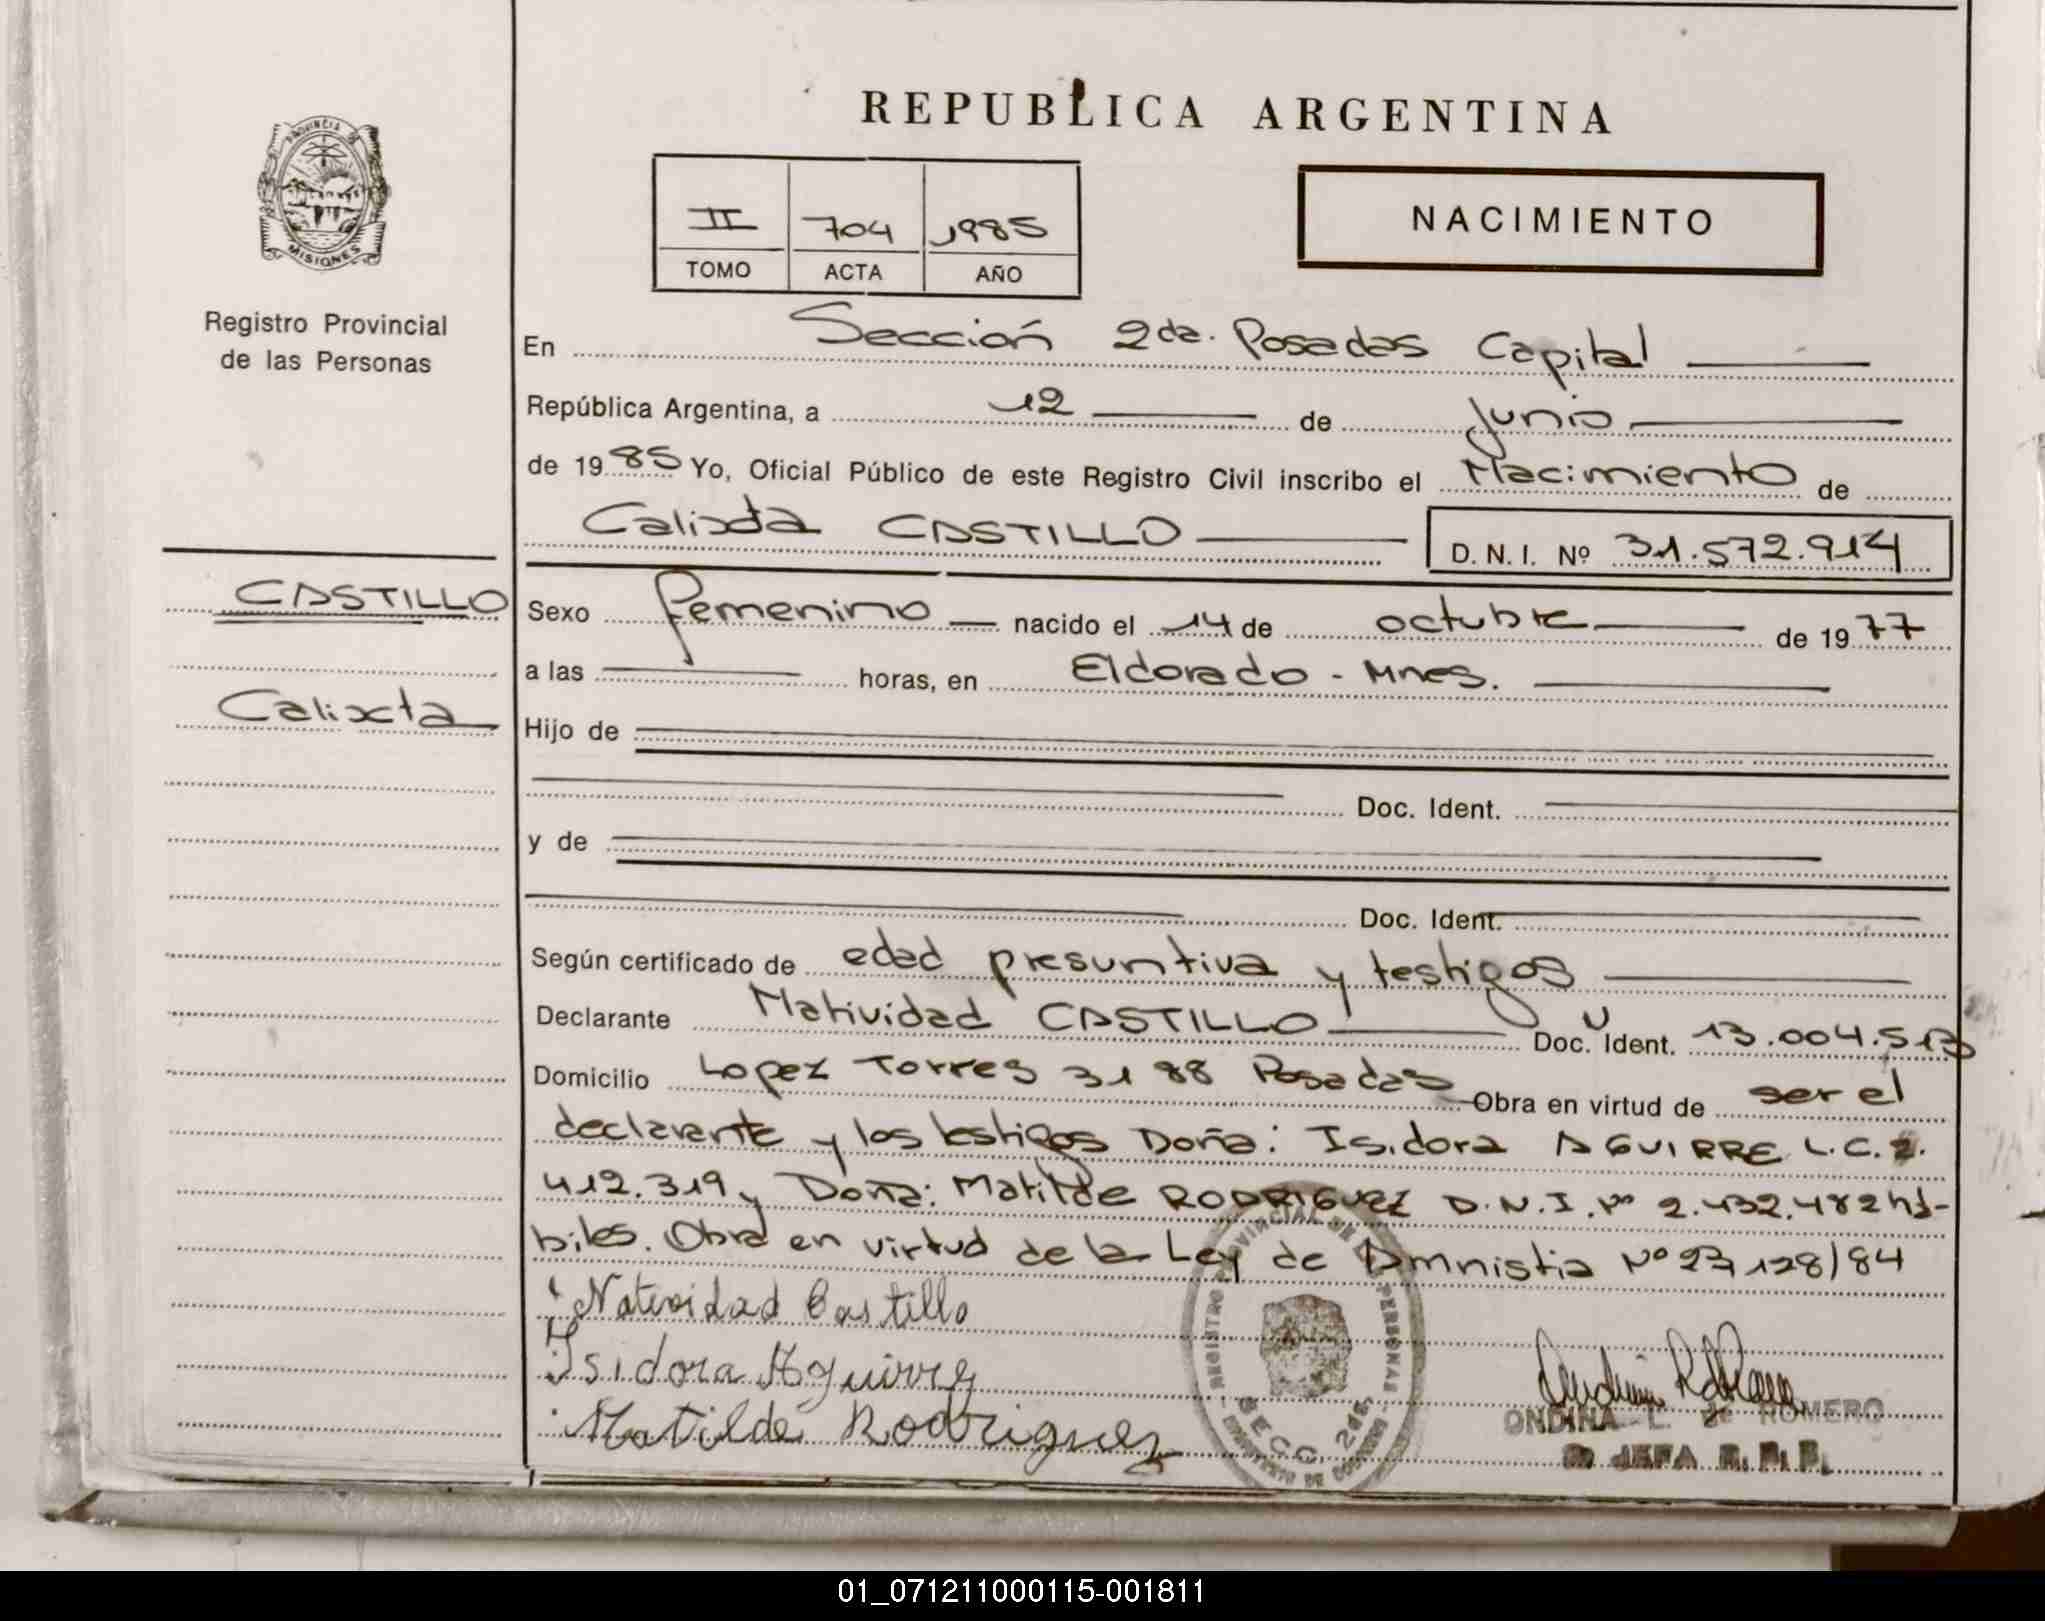 REPUBLICA ARGENTINA
PROVINCIA DE
MISIONES
Registro Provincial
de las Personas
II 704 1985
TOMO ACTA AÑO
NACIMIENTO
En Sección 2da. Posadas Capital
República Argentina, a 12 de Junio
de 1985 Yo, Oficial Público de este Registro Civil inscribo el Nacimiento de
Calixta CASTILLO D. N. I. Nº 31.572.914
CASTILLO
Calixta
Sexo femenino nacido el 14 de octubre de 1977
a las horas, en Eldorado - Mnes.
Hijo de
Doc. Ident.
y de
Doc. Ident.
Según certificado de edad presuntiva y testigos
Declarante Natividad CASTILLO Doc. Ident. 13.004.513
Domicilio Lopez Torres 3188 Posadas Obra en virtud de ser el
declarante y los testigos Doña: Isidora AGUIRRE L.C. 2.
412.319 y Doña: Matilde RODRIGUEZ D.N.I. Nº 2.432.482 há-
biles. Obra en virtud de la Ley de Amnistia Nº 23.128/84
Natividad Castillo
Isidora Aguirre
Matilde Rodriguez
REGISTRO PROVINCIAL DE LAS PERSONAS
SECC. 2da.
ONDINA L. de ROMERO
JEFA R. P. P.
01_071211000115-001811